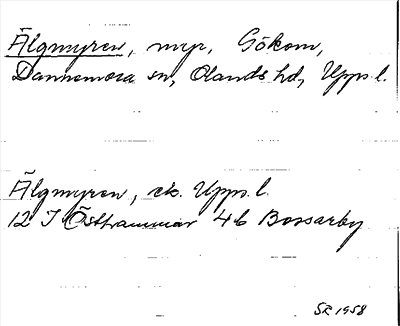 Älgmyren, myr, Gökom,
Dannemora sn, Olands hd, Upps.l.
Älgmyren, ek. Upps.l.
12 I Östhammar 4b Bossarby
SR 1958